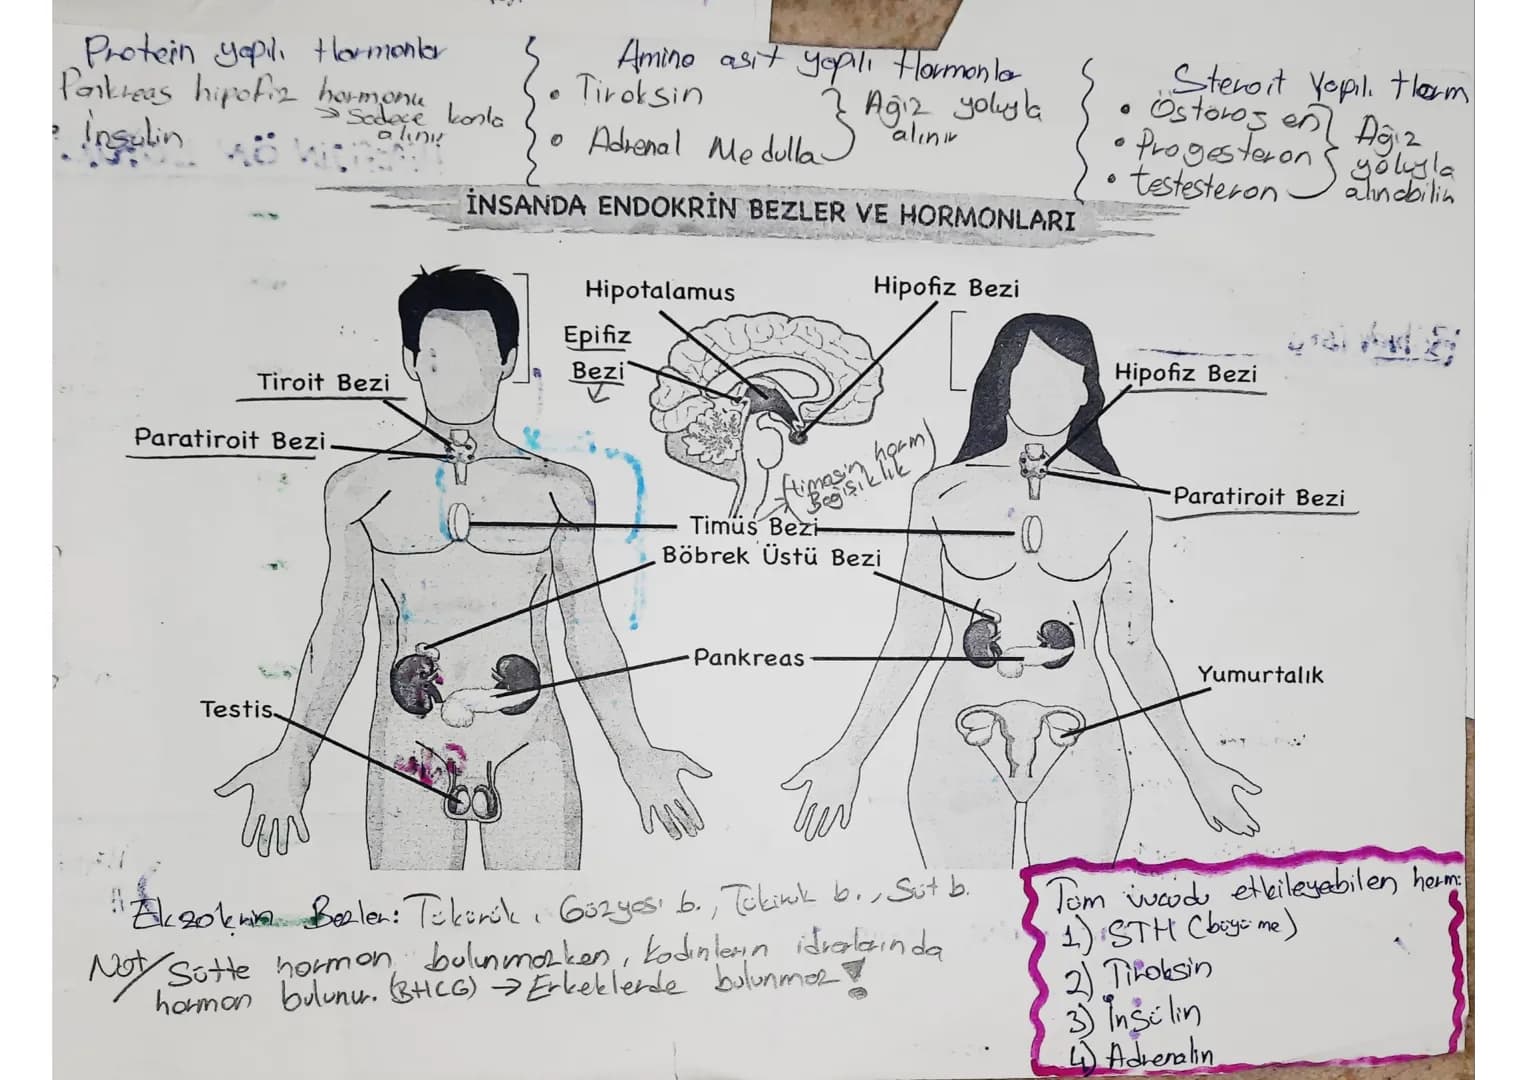 Protein yapılı Hormonlar
Pankreas hipofiz hormonu
→ Sadece kanla
alınır
• İnsulin
Amino asit yapılı Hormonlar
• Tiroksin
• Adrenal Medulla
Ağız yoluyla
alınır
Steroit Yapılı Horm
• Östorojen
• Progesteron
• testesteron
Ağız
yoluyla
alınabilir
İNSANDA ENDOKRİN BEZLER VE HORMONLARI
Hipotalamus
Hipofiz Bezi
Epifiz
Bezi
Tiroit Bezi
Hipofiz Bezi
Paratiroit Bezi
Paratiroit Bezi
(timosin horm)
Bağışıklık
Timüs Bezi
Böbrek Üstü Bezi
Pankreas
Yumurtalık
Testis
Ekzokrin Bezler: Tükürük, Gözyaşı b., Tükürük b., Süt b.
Not/ Sütte hormon bulunmazken, kadınların idrarlarında
hormon bulunur. (BHCG) → Erkeklerde bulunmaz!
Tüm vücudu etkileyebilen horm:
1) STH (büyüme)
2) Tiroksin
3) İnsülin
4) Adrenalin